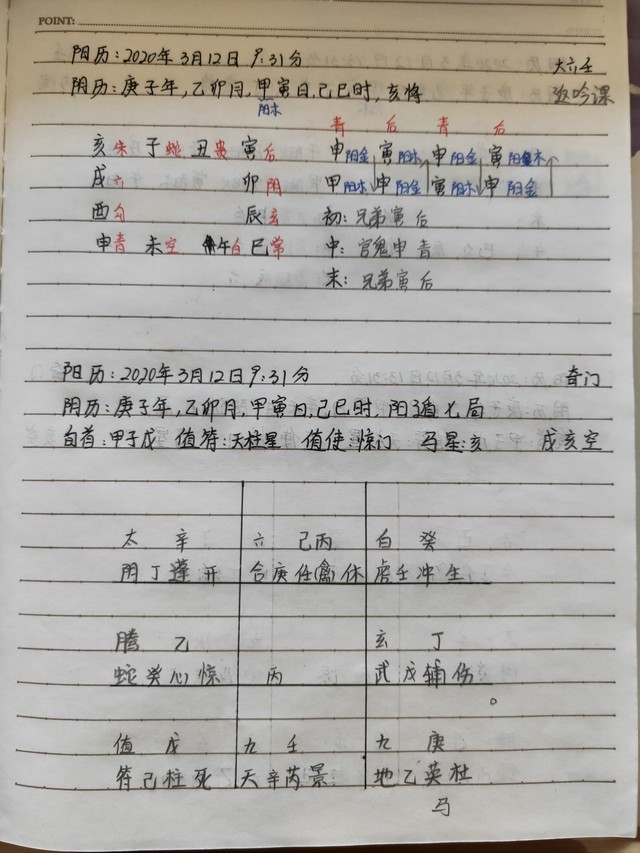 POINT:
阳历:2020年3月12日9:31分
大六壬
阴历:庚子年,乙卯月,甲寅日,己巳时,亥将
返吟课
阳木
青 后 青 后
亥朱 子蛇 丑贵 寅后
申阳金 寅阳木 申阳金 寅阳木
戌六 卯阴
甲阳木 申阳金 寅阳木 申阳金
酉勾 辰玄
初:兄弟寅后
申青 未空 午白 巳常
中:官鬼申青
末:兄弟寅后
阳历:2020年3月12日9:31分
奇门
阴历:庚子年,乙卯月,甲寅日,己巳时,阳遁七局
旬首:甲子戊 值符:天柱星 值使:惊门 马星:亥 戌亥空
太 辛 六 己丙 白 癸
阴丁蓬开 合庚任(禽)休 虎壬冲生
腾 乙 玄 丁
蛇癸心惊 丙 武戊辅伤
值 戊 九 壬 九 庚
符己柱死 天辛芮景 地乙英杜
马